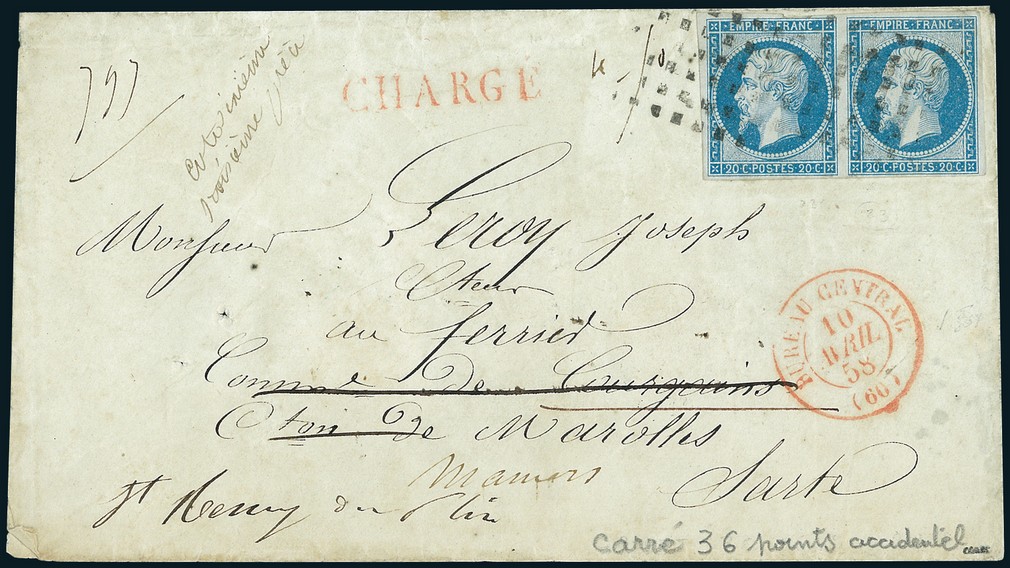 EMPIRE FRANC
EMPIRE FRANC
20·C·POSTES·20·C
20·C·POSTES·20·C
CHARGE
Monsieur Leroy Joseph
au ferrier
Commne de Courgains
Cton de Marolles
Mamers
Sarte
St Remy du Plin
BUREAU CENTRAL
10
AVRIL
58
(60)
carré 36 points accidentel